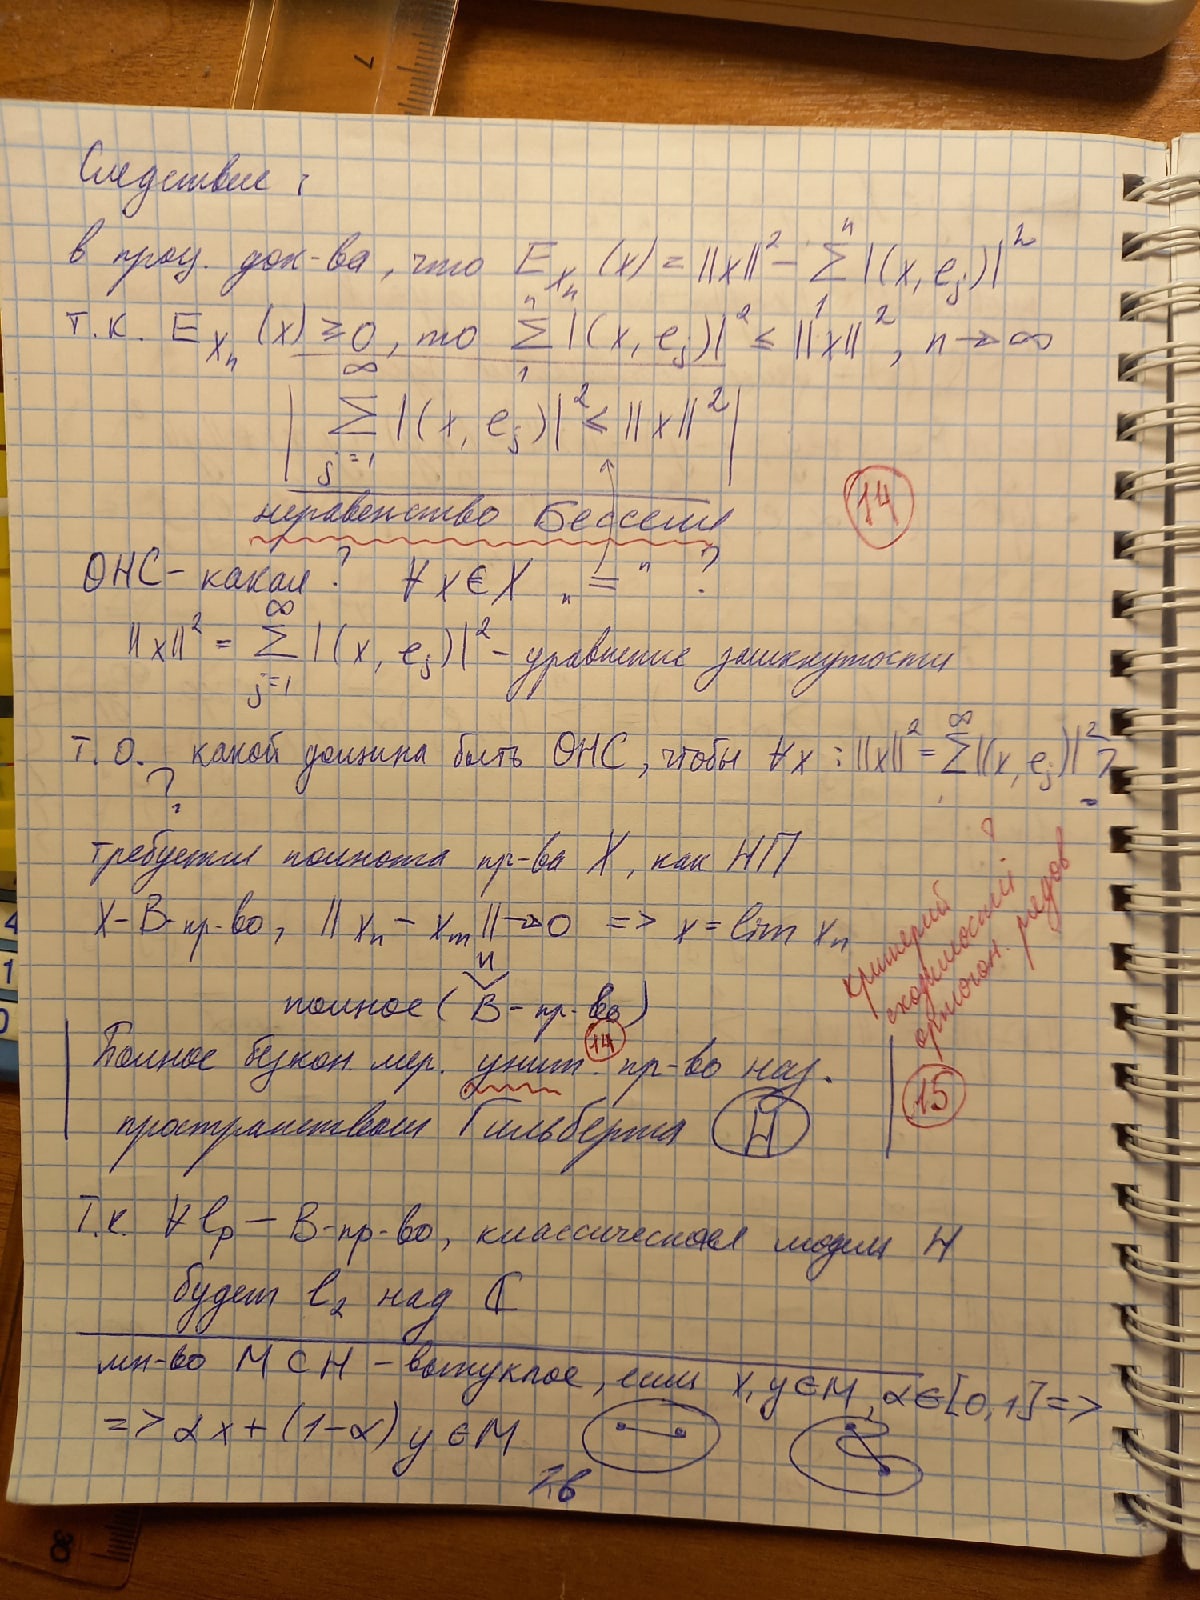 7
Следствие:
в проц. док-ва, что E_{X_n}(x) = ||x||² - Σ_1^n |(x, e_j)|²
т.к. E_{X_n}(x) ≥ 0, то Σ_1^n |(x, e_j)|² ≤ ||x||², n → ∞
Σ_{j=1}^∞ |(x, e_j)|² ≤ ||x||²
неравенство Бесселя
14
ОНС - какая? ∀ x ∈ X " = " ?
||x||² = Σ_{j=1}^∞ |(x, e_j)|² - уравнение замкнутости
т.о. какой должна быть ОНС, чтобы ∀x : ||x||² = Σ^∞ |(x, e_j)|² ?
?
требуется полнота пр-ва X, как НП
X-B-пр-во, ||x_n - x_m|| → 0 => x = lim x_n
полное (B - пр-во)
критерий сходимости ортогон. рядов ?
15
Полное безкон. мер. унит. пр-во наз.
14
пространством Гильберта H
Т.к. ∀ l_p - B-пр-во, классическая модель H
будет l_2 над ℂ
мн-во M ⊂ H - выпуклое, если x, y ∈ M, α ∈ [0, 1] =>
=> αx + (1-α) y ∈ M
26
30